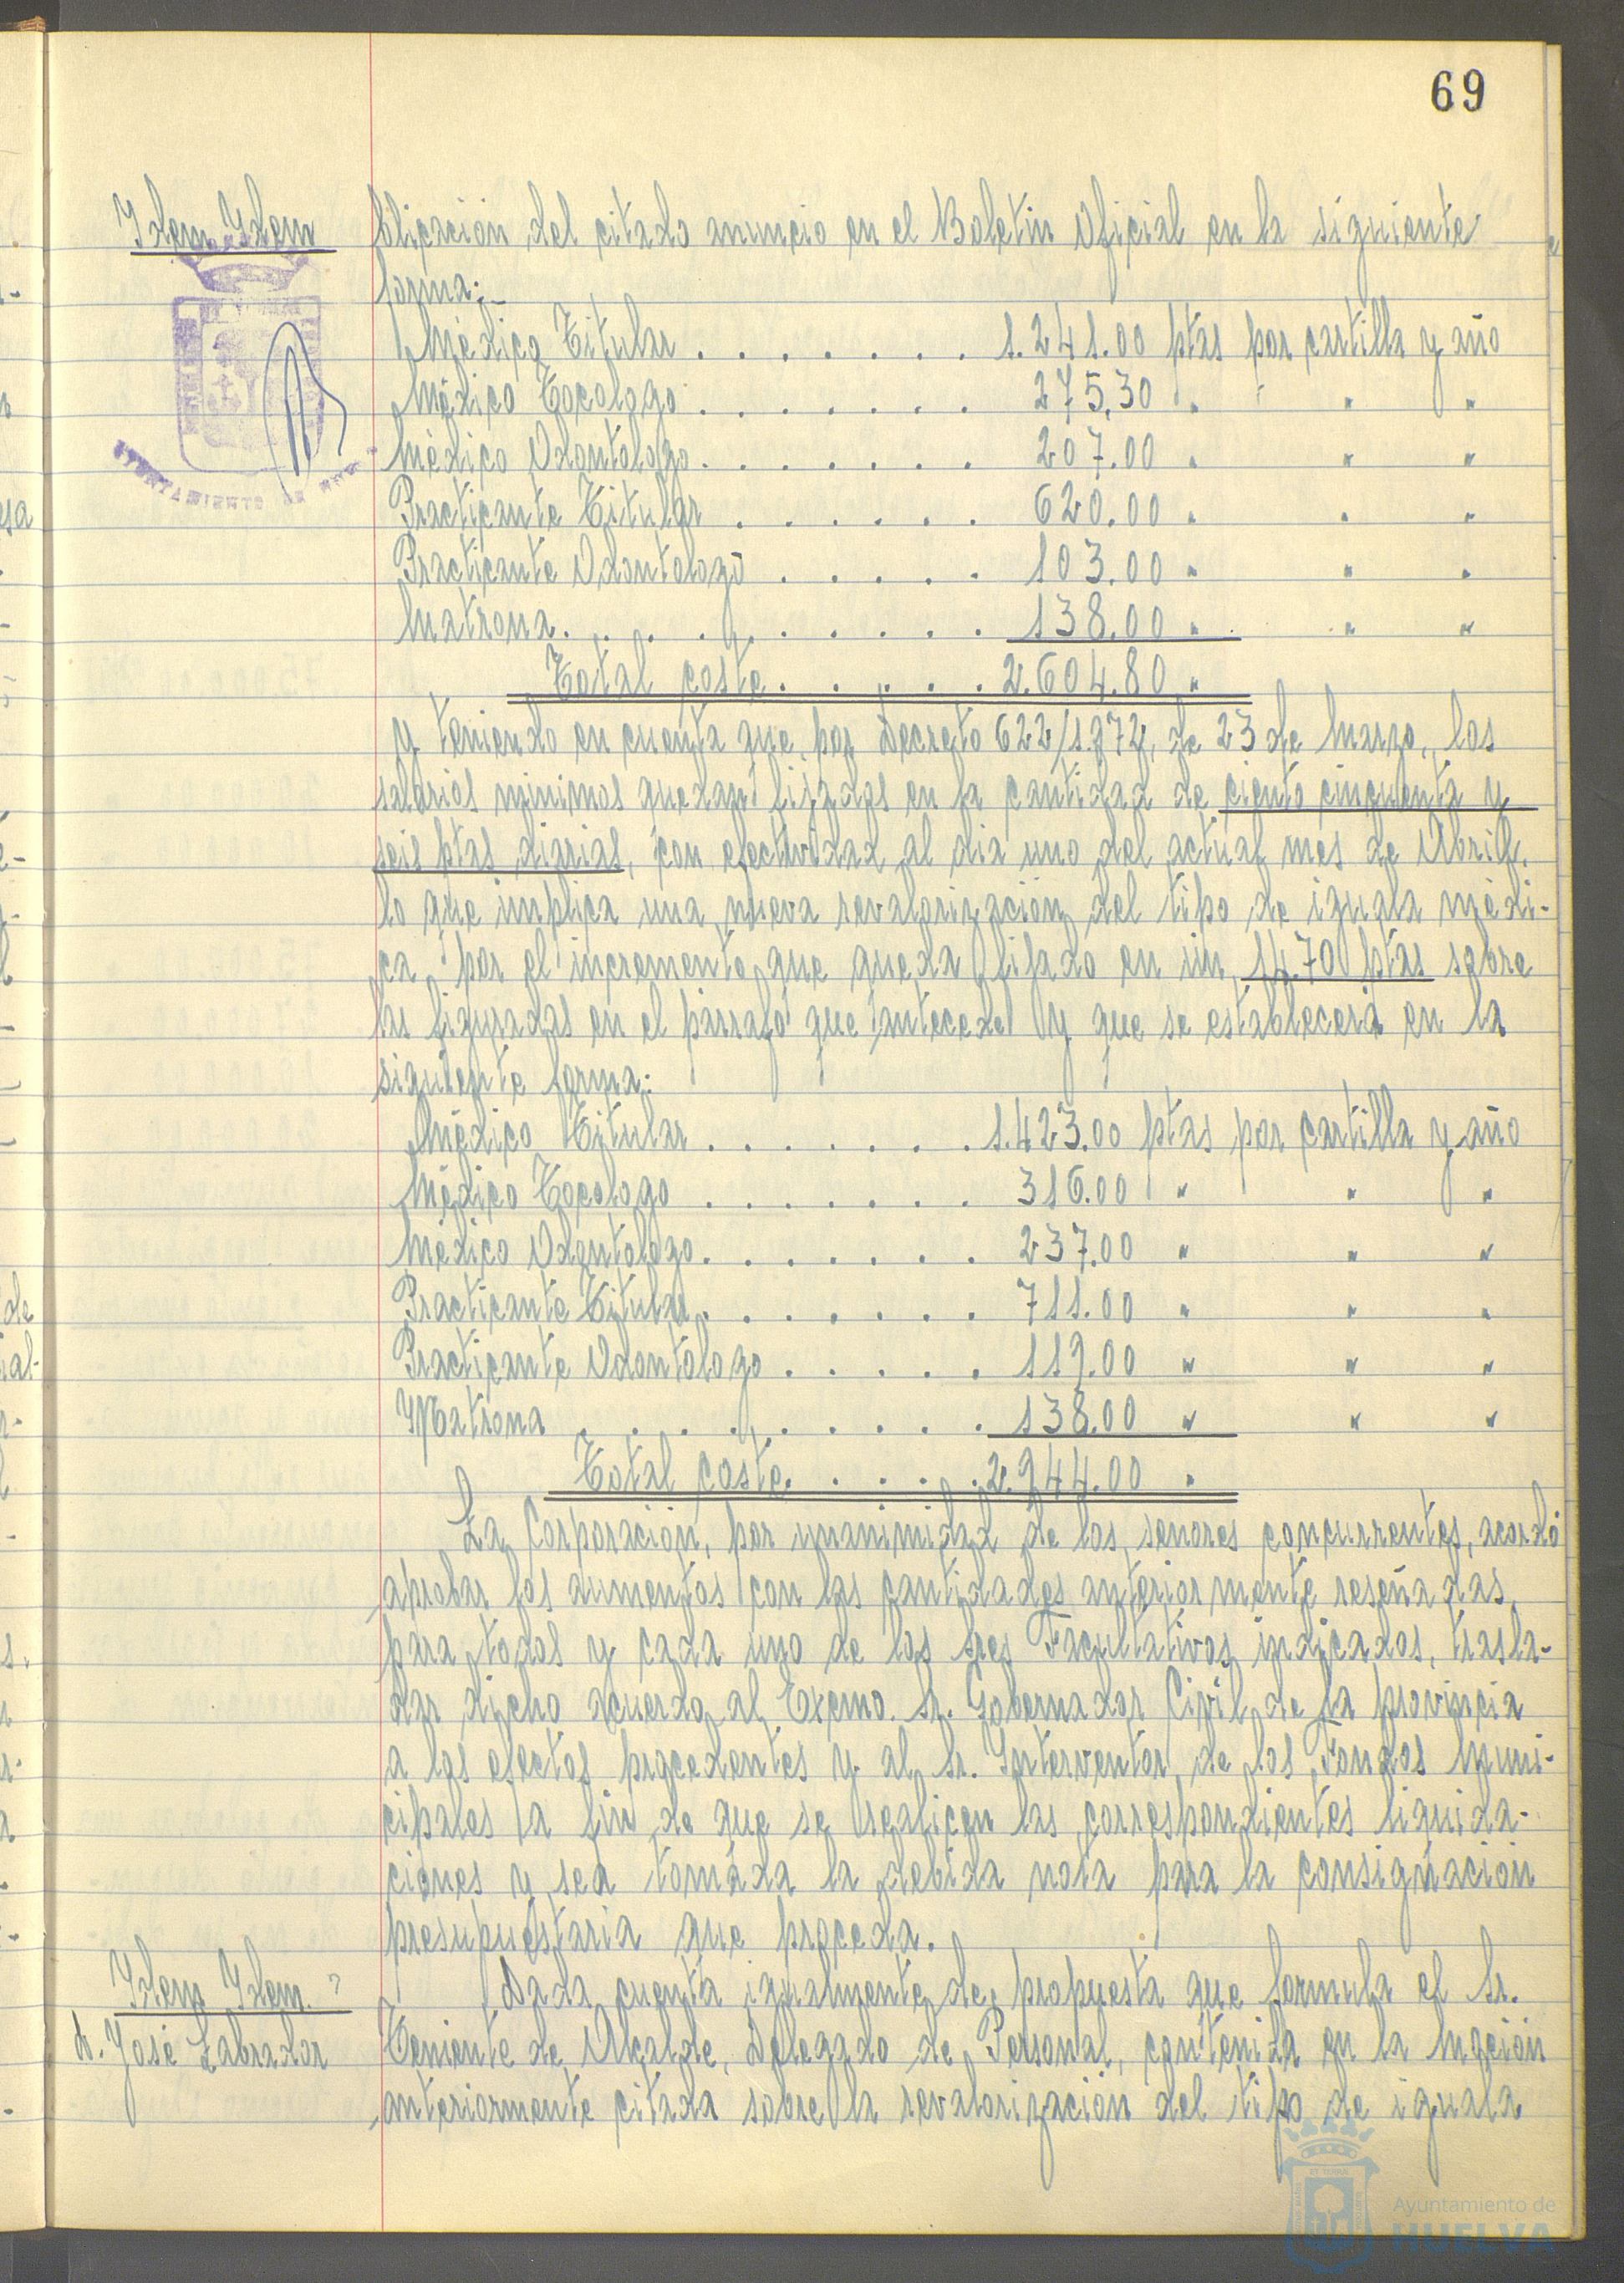 69
Idem Idem
blicación del citado anuncio en el Boletín Oficial en la siguiente
forma:
Médico Titular . . . . . . . 1.241.00 ptas por cartilla y año
Médico Tocologo . . . . . . . 275,30 " " " "
Médico Odontologo . . . . . . . 207.00 " " "
Practicante Titular . . . . . . 620.00 " " "
Practicante Odontologo . . . . . 103.00 " " "
Matrona . . . . . . . . . 138.00 " " "
Total coste . . . . . . 2.604.80 "
y teniendo en cuenta que, por Decreto 622/1.972, de 23 de Marzo, los
salarios minimos quedan fijados en la cantidad de ciento cincuenta y
seis ptas diarias, con efectividad al dia uno del actual mes de Abril,
lo que implica una nueva revalorización del tipo de iguala médi-
ca por el incremento que queda fijado en un 14.70 ptas sobre
las figuradas en el párrafo que antecede y que se establecerá en la
siguiente forma:
Médico Titular . . . . . . . 1.423.00 ptas por cartilla y año
Médico Tocologo . . . . . . . 316.00 " " "
Médico Odontologo . . . . . . . 237.00 " " "
Practicante Titular . . . . . . . 711.00 " " "
Practicante Odontólogo . . . . . 119.00 " " "
Matrona . . . . . . . . . 138.00 " " "
Total coste . . . . . 2.944.00 "
La Corporación, por unanimidad de los senores concurrentes, acordó
aprobar los aumentos con las cantidades anteriormente reseñadas,
para todos y cada uno de los Sres Facultativos indicados, trasla-
dar dicho acuerdo al Excmo. Sr. Gobernador Civil de la provincia
a los efectos procedentes y al Sr. Interventor de los Fondos Muni-
cipales a fin de que se realicen las correspondientes liquida-
ciones y sea tomada la debida nota para la consignación
presupuestaria que proceda.
Idem Idem
D. José Labrador
Dada cuenta igualmente de propuesta que formula el Sr.
Teniente de Alcalde, Delegado de Personal, contenida en la Moción
anteriormente citada sobre la revalorización del tipo de iguala
Ayuntamiento de
HUELVA